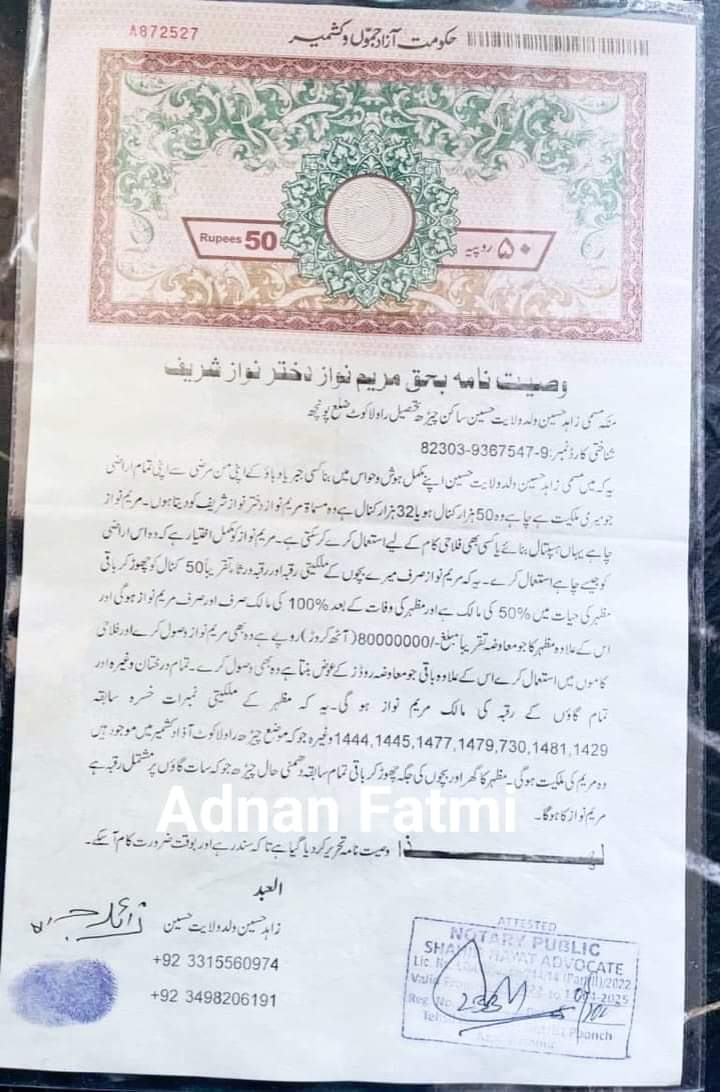 A872527
حکومت آزاد جموں و کشمیر
Rupees 50
۵۰ روپیہ
وصیت نامہ بحق مریم نواز دختر نواز شریف
منکہ مسمی زاہد حسین ولد ولایت حسین ساکن چیڑھ تحصیل راولاکوٹ ضلع پونچھ
شناختی کارڈ نمبر: 82303-9367547-9
یہ کہ میں مسمی زاہد حسین ولد ولایت حسین اپنے مکمل ہوش و حواس میں بنا کسی جبر یا دباؤ کے اپنی من مرضی سے اپنی تمام اراضی
جو میری ملکیت ہے چاہے وہ 50 ہزار کنال ہو یا 32 ہزار کنال ہے وہ مسماۃ مریم نواز دختر نواز شریف کو دیتا ہوں۔ مریم نواز
چاہے یہاں ہسپتال بنائے یا کسی بھی فلاحی کام کے لیے استعمال کرے کر سکتی ہے۔ مریم نواز کو مکمل اختیار ہے کہ وہ اس اراضی
کو جیسے چاہے استعمال کرے۔ یہ کہ مریم نواز صرف میرے بچوں کے ملکیتی رقبہ اور رقبہ ورثاء تقریباً 50 کنال کو چھوڑ کر باقی
مظہر کی حیات میں 50% کی مالک ہے اور مظہر کی وفات کے بعد 100% کی مالک صرف اور صرف مریم نواز ہوگی اور
اس کے علاوہ مظہر کا جو معاوضہ تقریباً مبلغ -/80000000 (آٹھ کروڑ) روپے ہے وہ بھی مریم نواز وصول کرے اور فلاحی
کاموں میں استعمال کرے اس کے علاوہ باقی جو معاوضہ روڈز کے عوض بنتا ہے وہ بھی وصول کرے۔ تمام درختان وغیرہ اور
تمام گاؤں کے رقبہ کی مالک مریم نواز ہو گی۔ یہ کہ مظہر کے ملکیتی نمبرات خسرہ سابقہ
1444,1445,1477,1479,730,1481,1429 وغیرہ جو کہ موضع چیڑھ راولاکوٹ آزاد کشمیر میں موجود ہیں
وہ مریم کی ملکیت ہوگی۔ مظہر کا گھر اور بچوں کی جگہ چھوڑ کر باقی تمام سابقہ دھمنی حال چیڑھ جو کہ سات گاؤں پر مشتمل رقبہ ہے
مریم نواز کا ہوگا۔
Adnan Fatmi
لہذا وصیت نامہ تحریر کر دیا گیا ہے تاکہ سند رہے اور بوقت ضرورت کام آ سکے۔
العبد
زاہد حسین ولد ولایت حسین
+92 3315560974
+92 3498206191
ATTESTED
NOTARY PUBLIC
HAYAT ADVOCATE
Lic. No. /2022
Valid From 2025
Reg. No.
Poonch